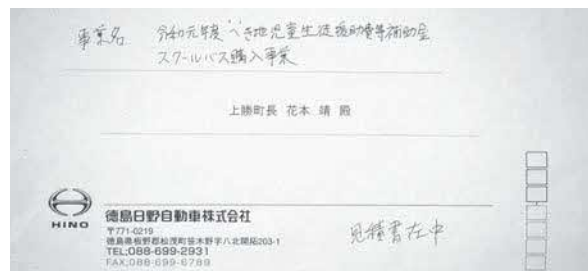 事業名 令和元年度 へき地児童生徒援助費等補助金
スクールバス購入事業
上勝町長 花本 靖 殿
HINO
徳島日野自動車株式会社
〒771-0219
徳島県板野郡松茂町笹木野字八北開拓203-1
TEL:088-699-2931
FAX:088-699-6789
見積書在中